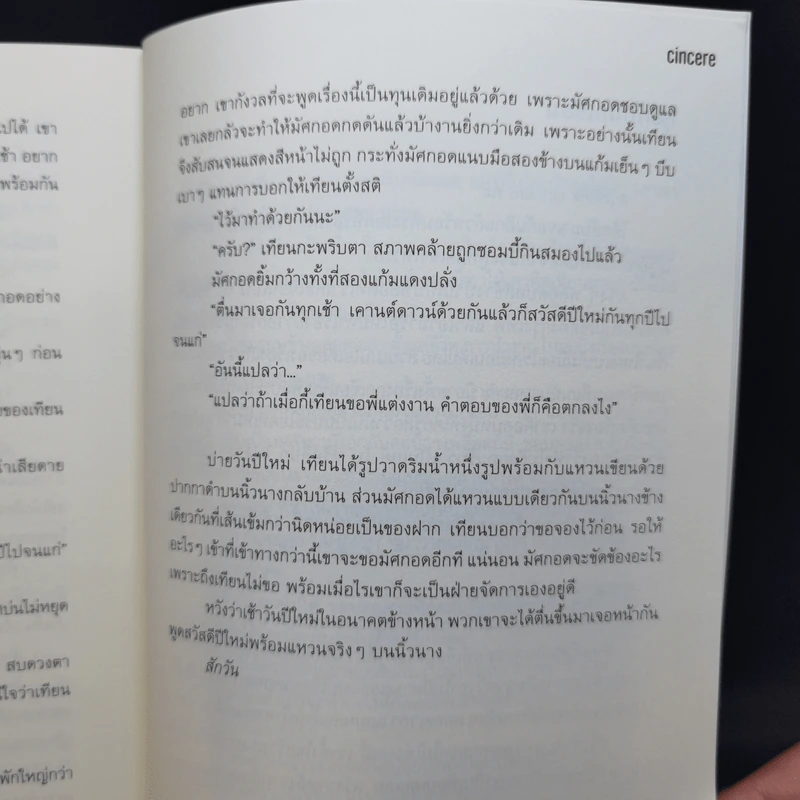 ปได้ เขา
ช้า อยาก
พร้อมกัน
กอดอย่าง
ก่อน
ของเทียน
เสียดาย
ปีไปจนแก่"
บ่นไม่หยุด
สบดวงตา
ใจว่าเทียน
พักใหญ่กว่า
cincere
อยาก เขากังวลที่จะพูดเรื่องนี้เป็นทุนเดิมอยู่แล้วด้วย เพราะมัศกอดชอบดูแล
เขาเลยกลัวจะทำให้มัศกอดกดดันแล้วบ้างานยิ่งกว่าเดิม เพราะอย่างนั้นเทียน
จึงสับสนจนแสดงสีหน้าไม่ถูก กระทั่งมัศกอดแนบมือสองข้างบนแก้มเย็นๆ บีบ
เบาๆ แทนการบอกให้เทียนตั้งสติ
"ไว้มาทำด้วยกันนะ"
"ครับ?" เทียนกะพริบตา สภาพคล้ายถูกซอมบี้กินสมองไปแล้ว
มัศกอดยิ้มกว้างทั้งที่สองแก้มแดงปลั่ง
"ตื่นมาเจอกันทุกเช้า เคานต์ดาวน์ด้วยกันแล้วก็สวัสดีปีใหม่กันทุกปีไป
จนแก่"
"อันนี้แปลว่า..."
"แปลว่าถ้าเมื่อกี้เทียนขอพี่แต่งงาน คำตอบของพี่ก็คือตกลงไง"
บ่ายวันปีใหม่ เทียนได้รูปวาดริมน้ำหนึ่งรูปพร้อมกับแหวนเขียนด้วย
ปากกาดำบนนิ้วนางกลับบ้าน ส่วนมัศกอดได้แหวนแบบเดียวกันบนนิ้วนางข้าง
เดียวกันที่เส้นเข้มกว่านิดหน่อยเป็นของฝาก เทียนบอกว่าขอจองไว้ก่อน รอให้
อะไรๆ เข้าที่เข้าทางกว่านี้เขาจะขอมัศกอดอีกที แน่นอน มัศกอดจะขัดข้องอะไร
เพราะถึงเทียนไม่ขอ พร้อมเมื่อไรเขาก็จะเป็นฝ่ายจัดการเองอยู่ดี
หวังว่าเช้าวันปีใหม่ในอนาคตข้างหน้า พวกเขาจะได้ตื่นขึ้นมาเจอหน้ากัน
พูดสวัสดีปีใหม่พร้อมแหวนจริงๆ บนนิ้วนาง
สักวัน